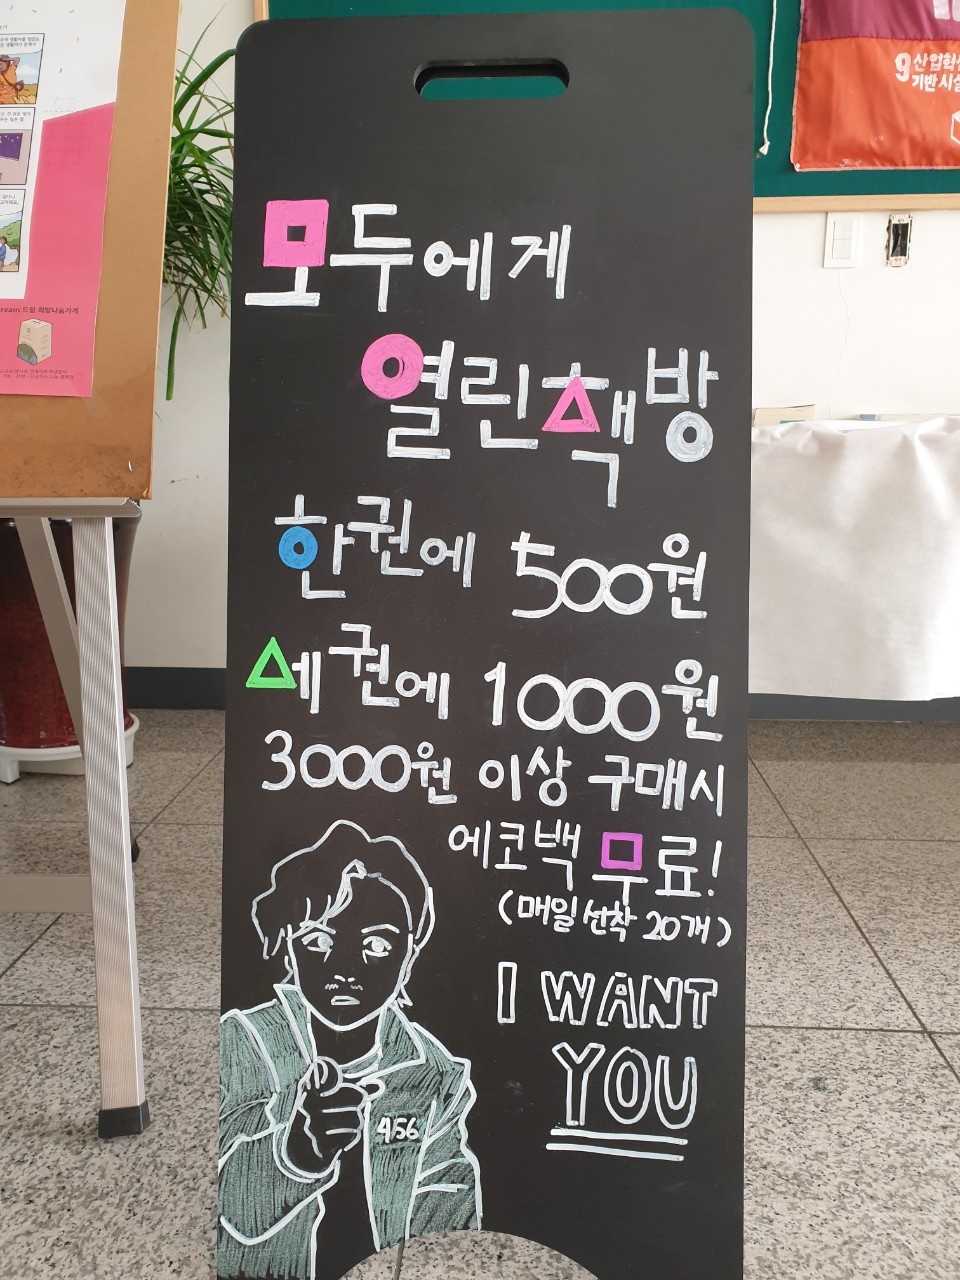 모두에게
열린책방
한권에 500원
세권에 1000원
3000원 이상 구매시
에코백 무료!
(매일 선착 20개)
I WANT
YOU
456
9 산업혁신
기반시설